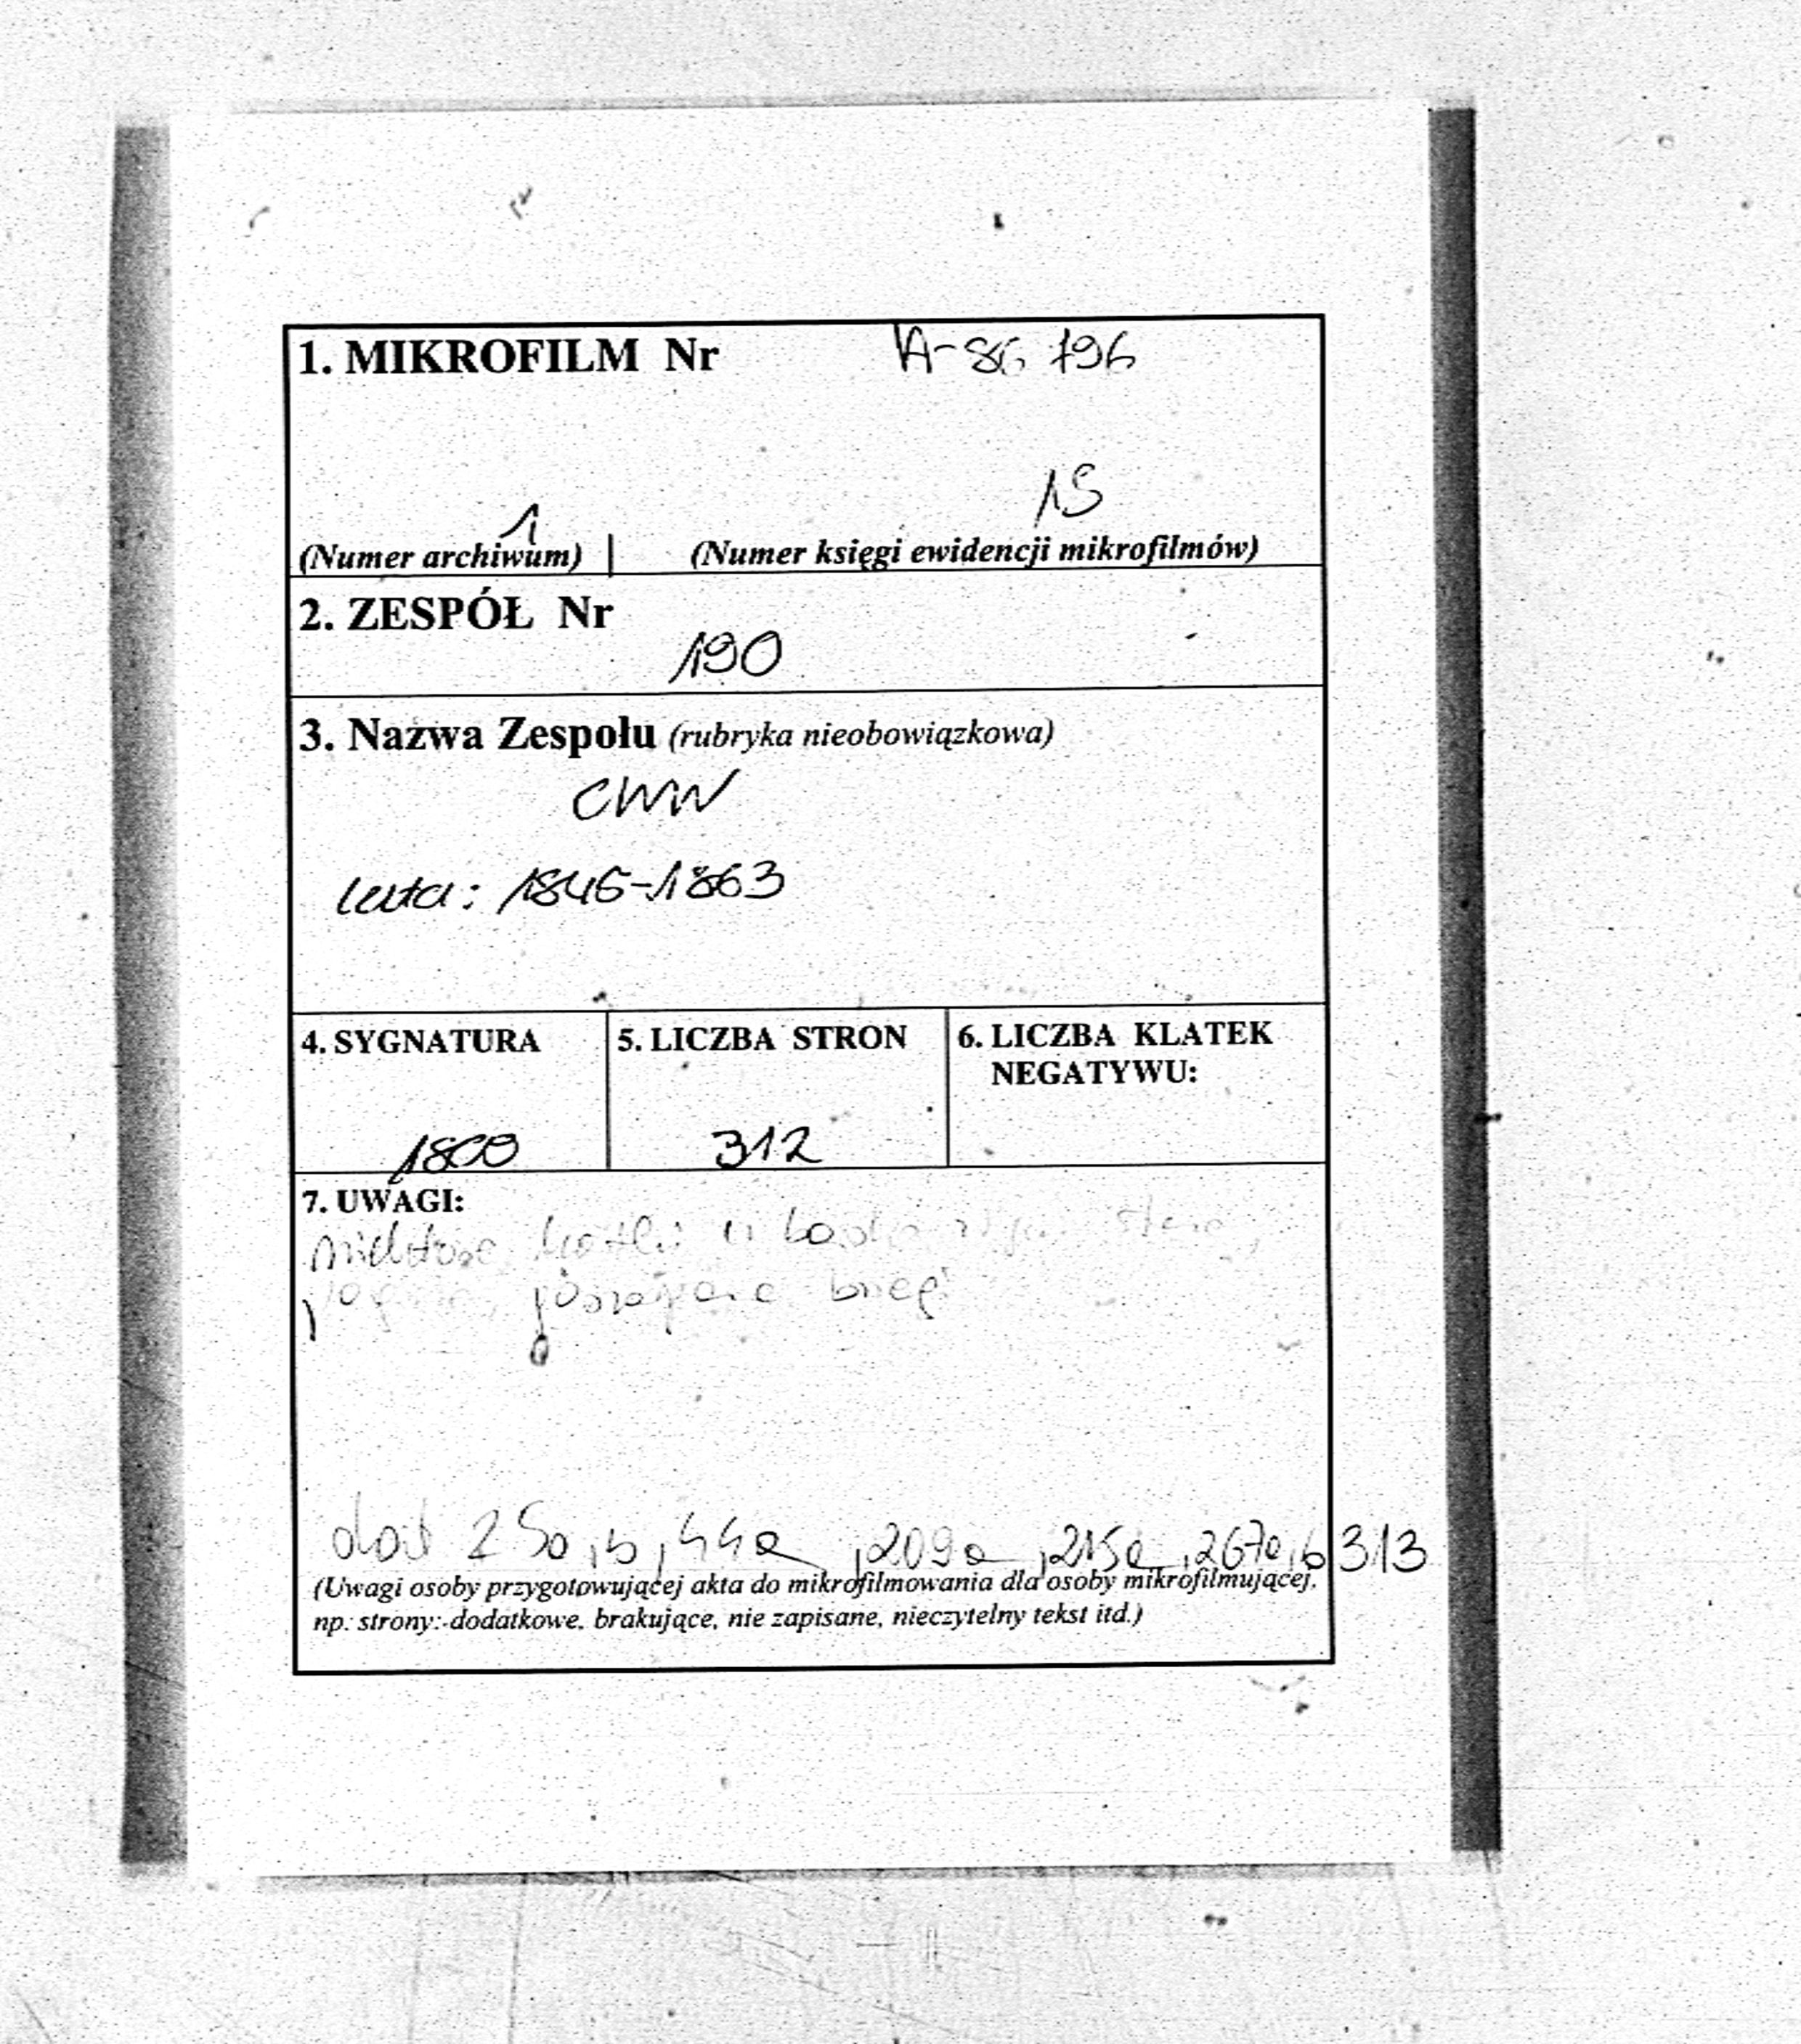 1. MIKROFILM Nr A-86 796
1 15
(Numer archiwum) | (Numer księgi ewidencji mikrofilmów)
2. ZESPÓŁ Nr
190
3. Nazwa Zespołu (rubryka nieobowiązkowa)
CWW
lata: 1846-1863
4. SYGNATURA 5. LICZBA STRON 6. LICZBA KLATEK
NEGATYWU:
312
7. UWAGI:
Niektóre w
brzegi
dod 250,b, 44a, 209a, 215a, 267a,b 313
(Uwagi osoby przygotowującej akta do mikrofilmowania dla osoby mikrofilmującej,
np: strony: dodatkowe, brakujące, nie zapisane, nieczytelny tekst itd.)